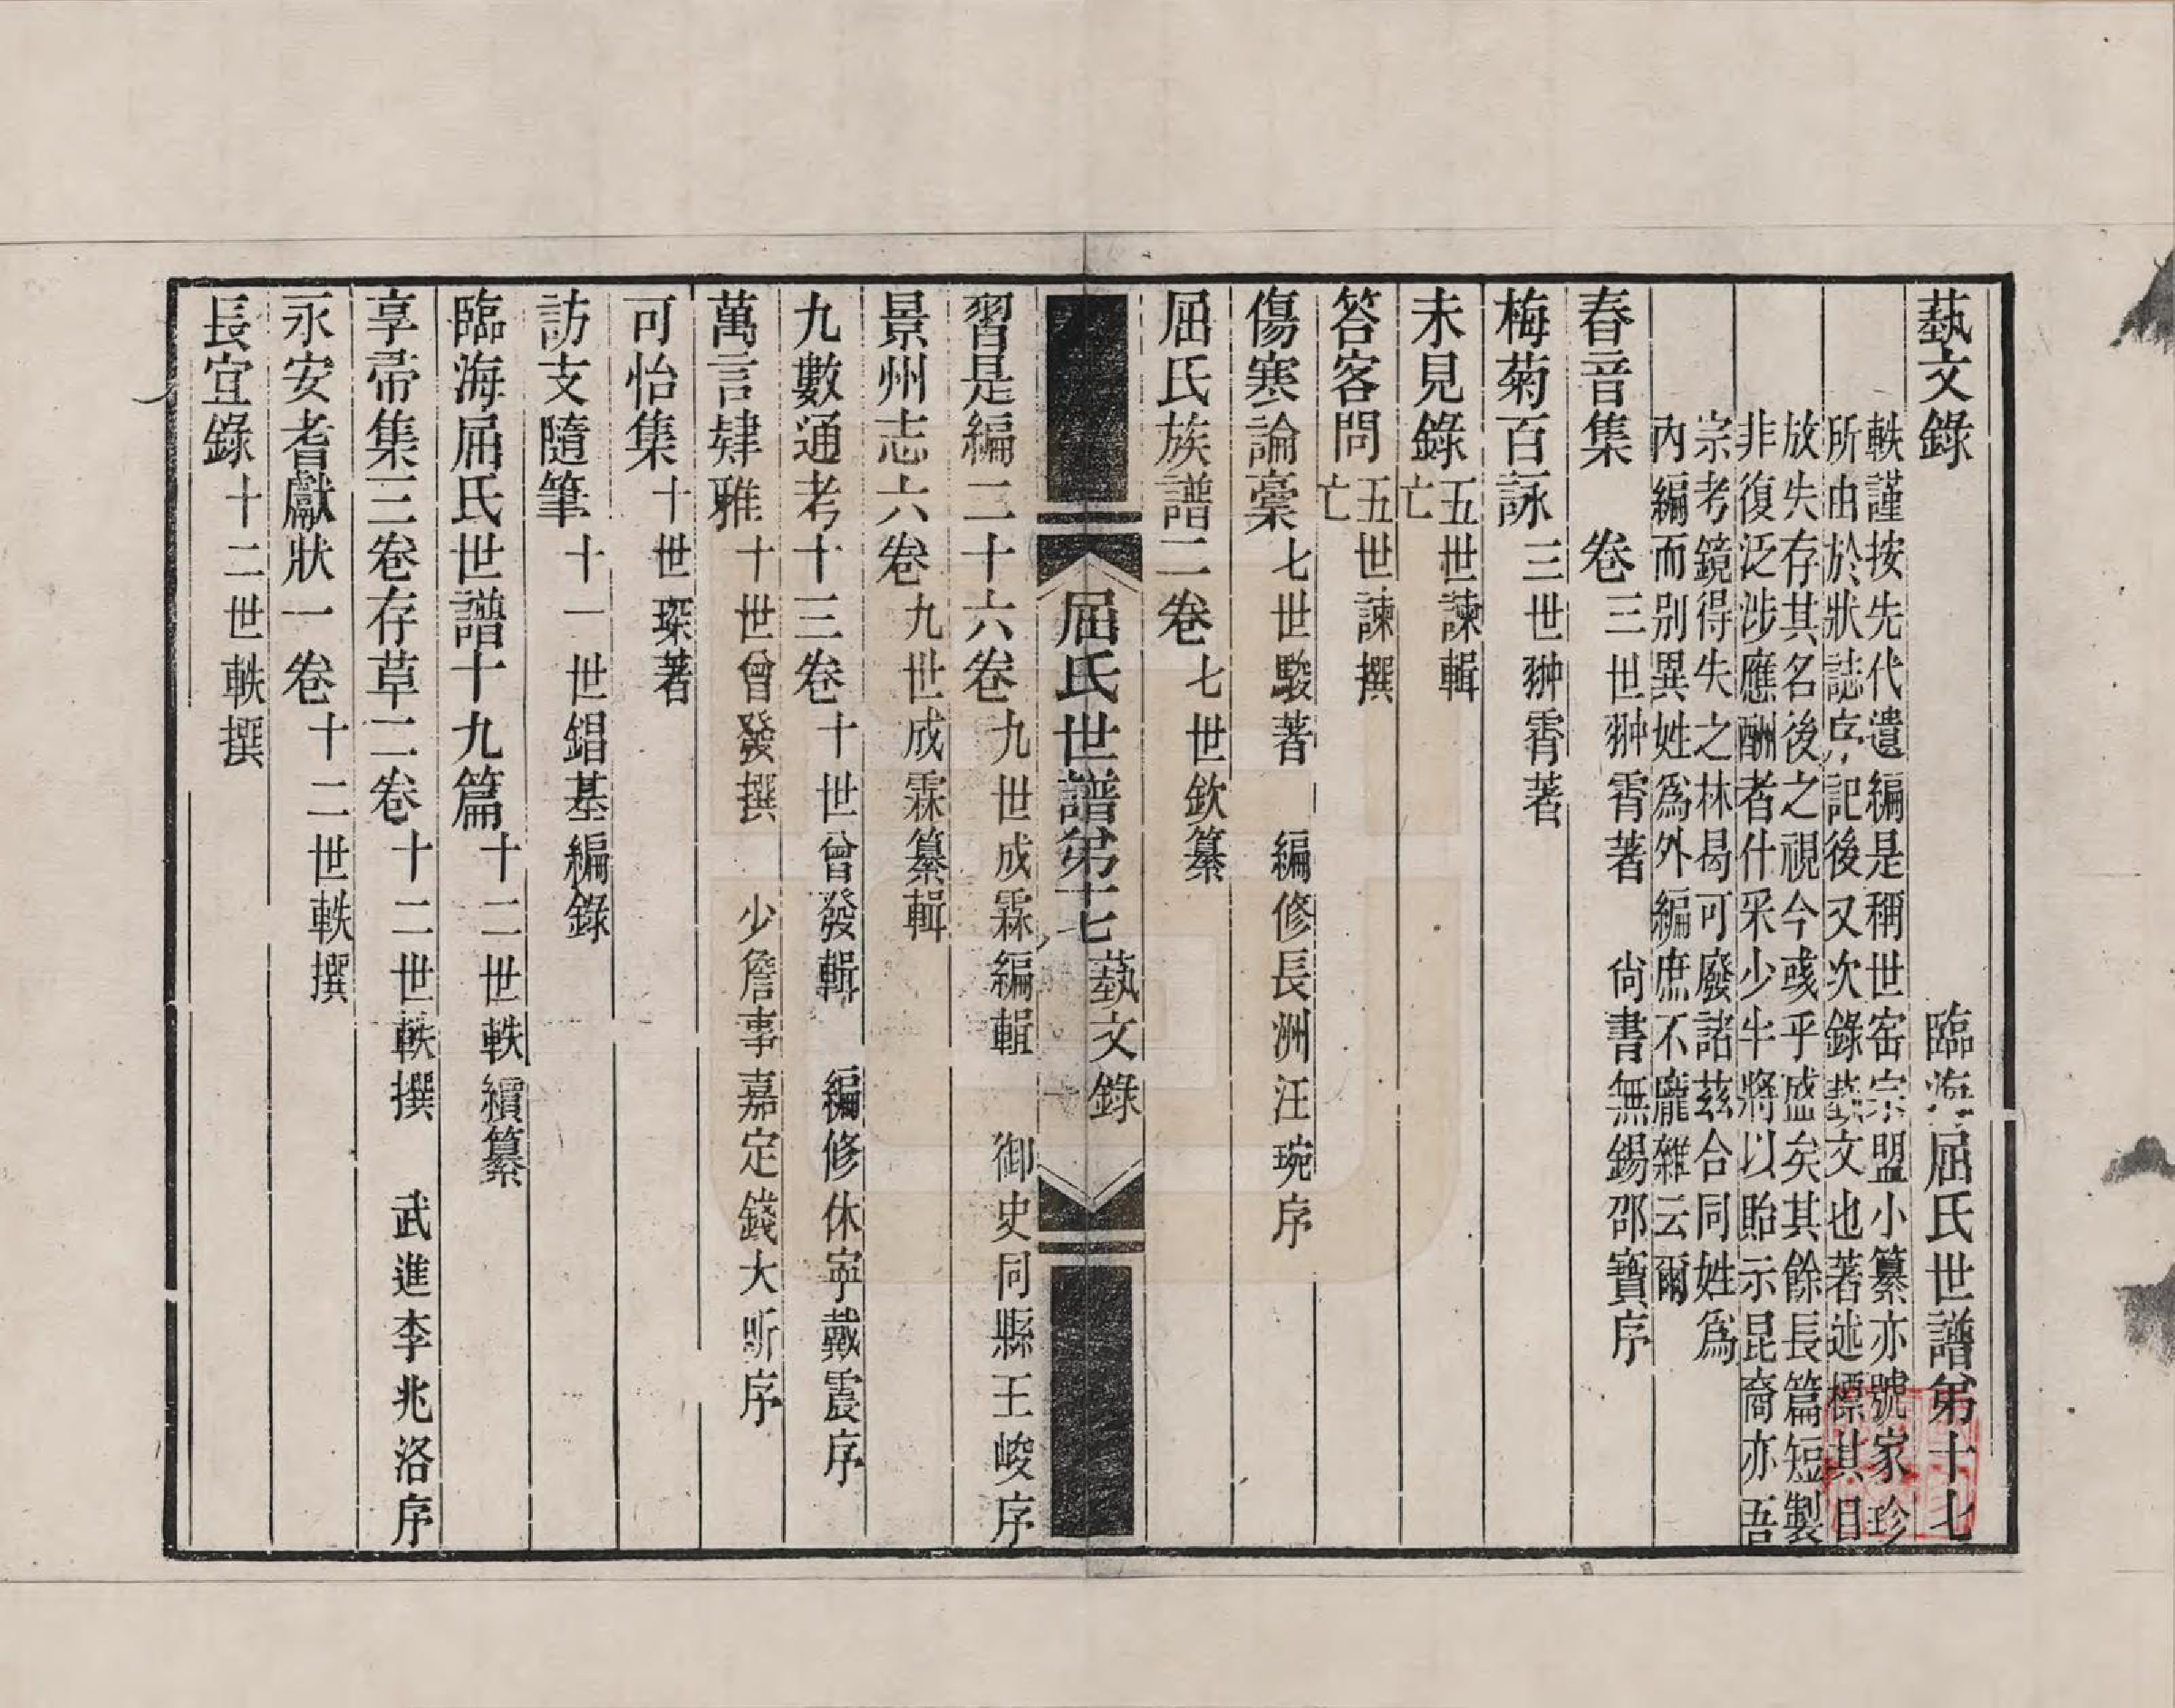 藝文錄 臨海屈氏世譜弟十七
軼謹按先代遺編是稱世窑宗盟小纂亦號家珍
所由於狀誌序記後又次錄藝文也著述標其目
放失存其名後之視今彧乎盛矣其餘長篇短製
非復泛涉應酬者什采少牛將以貽示昆裔亦吾
宗考鏡得失之林曷可廢諸茲合同姓為
內編而別異姓爲外編庶不龐雜云爾
春音集 卷三世翀霄著 尙書無錫邵寶序
梅菊百詠三世翀霄著
未見錄五世諫輯
亡
答客問五世諫撰
亡
傷寒論槀七世駿著 編修長洲汪琬序
屈氏族譜二卷七世欽纂
屈氏世譜弟十七 藝文錄 一
習是編二十六卷九世成霖編輯 御史同縣王峻序
景州志六卷九世成霖纂輯
九數通考十三卷十世曾發輯 編修休寧戴震序
萬言肄雅十世曾發撰 少詹事嘉定錢大昕序
可怡集十世琛著
訪支隨筆十一世錩基編錄
臨海屈氏世譜十九篇十二世軼續纂
享帚集三卷存草二卷十二世軼撰 武進李兆洛序
永安耆獻狀一卷十二世軼撰
長宜錄十二世軼撰